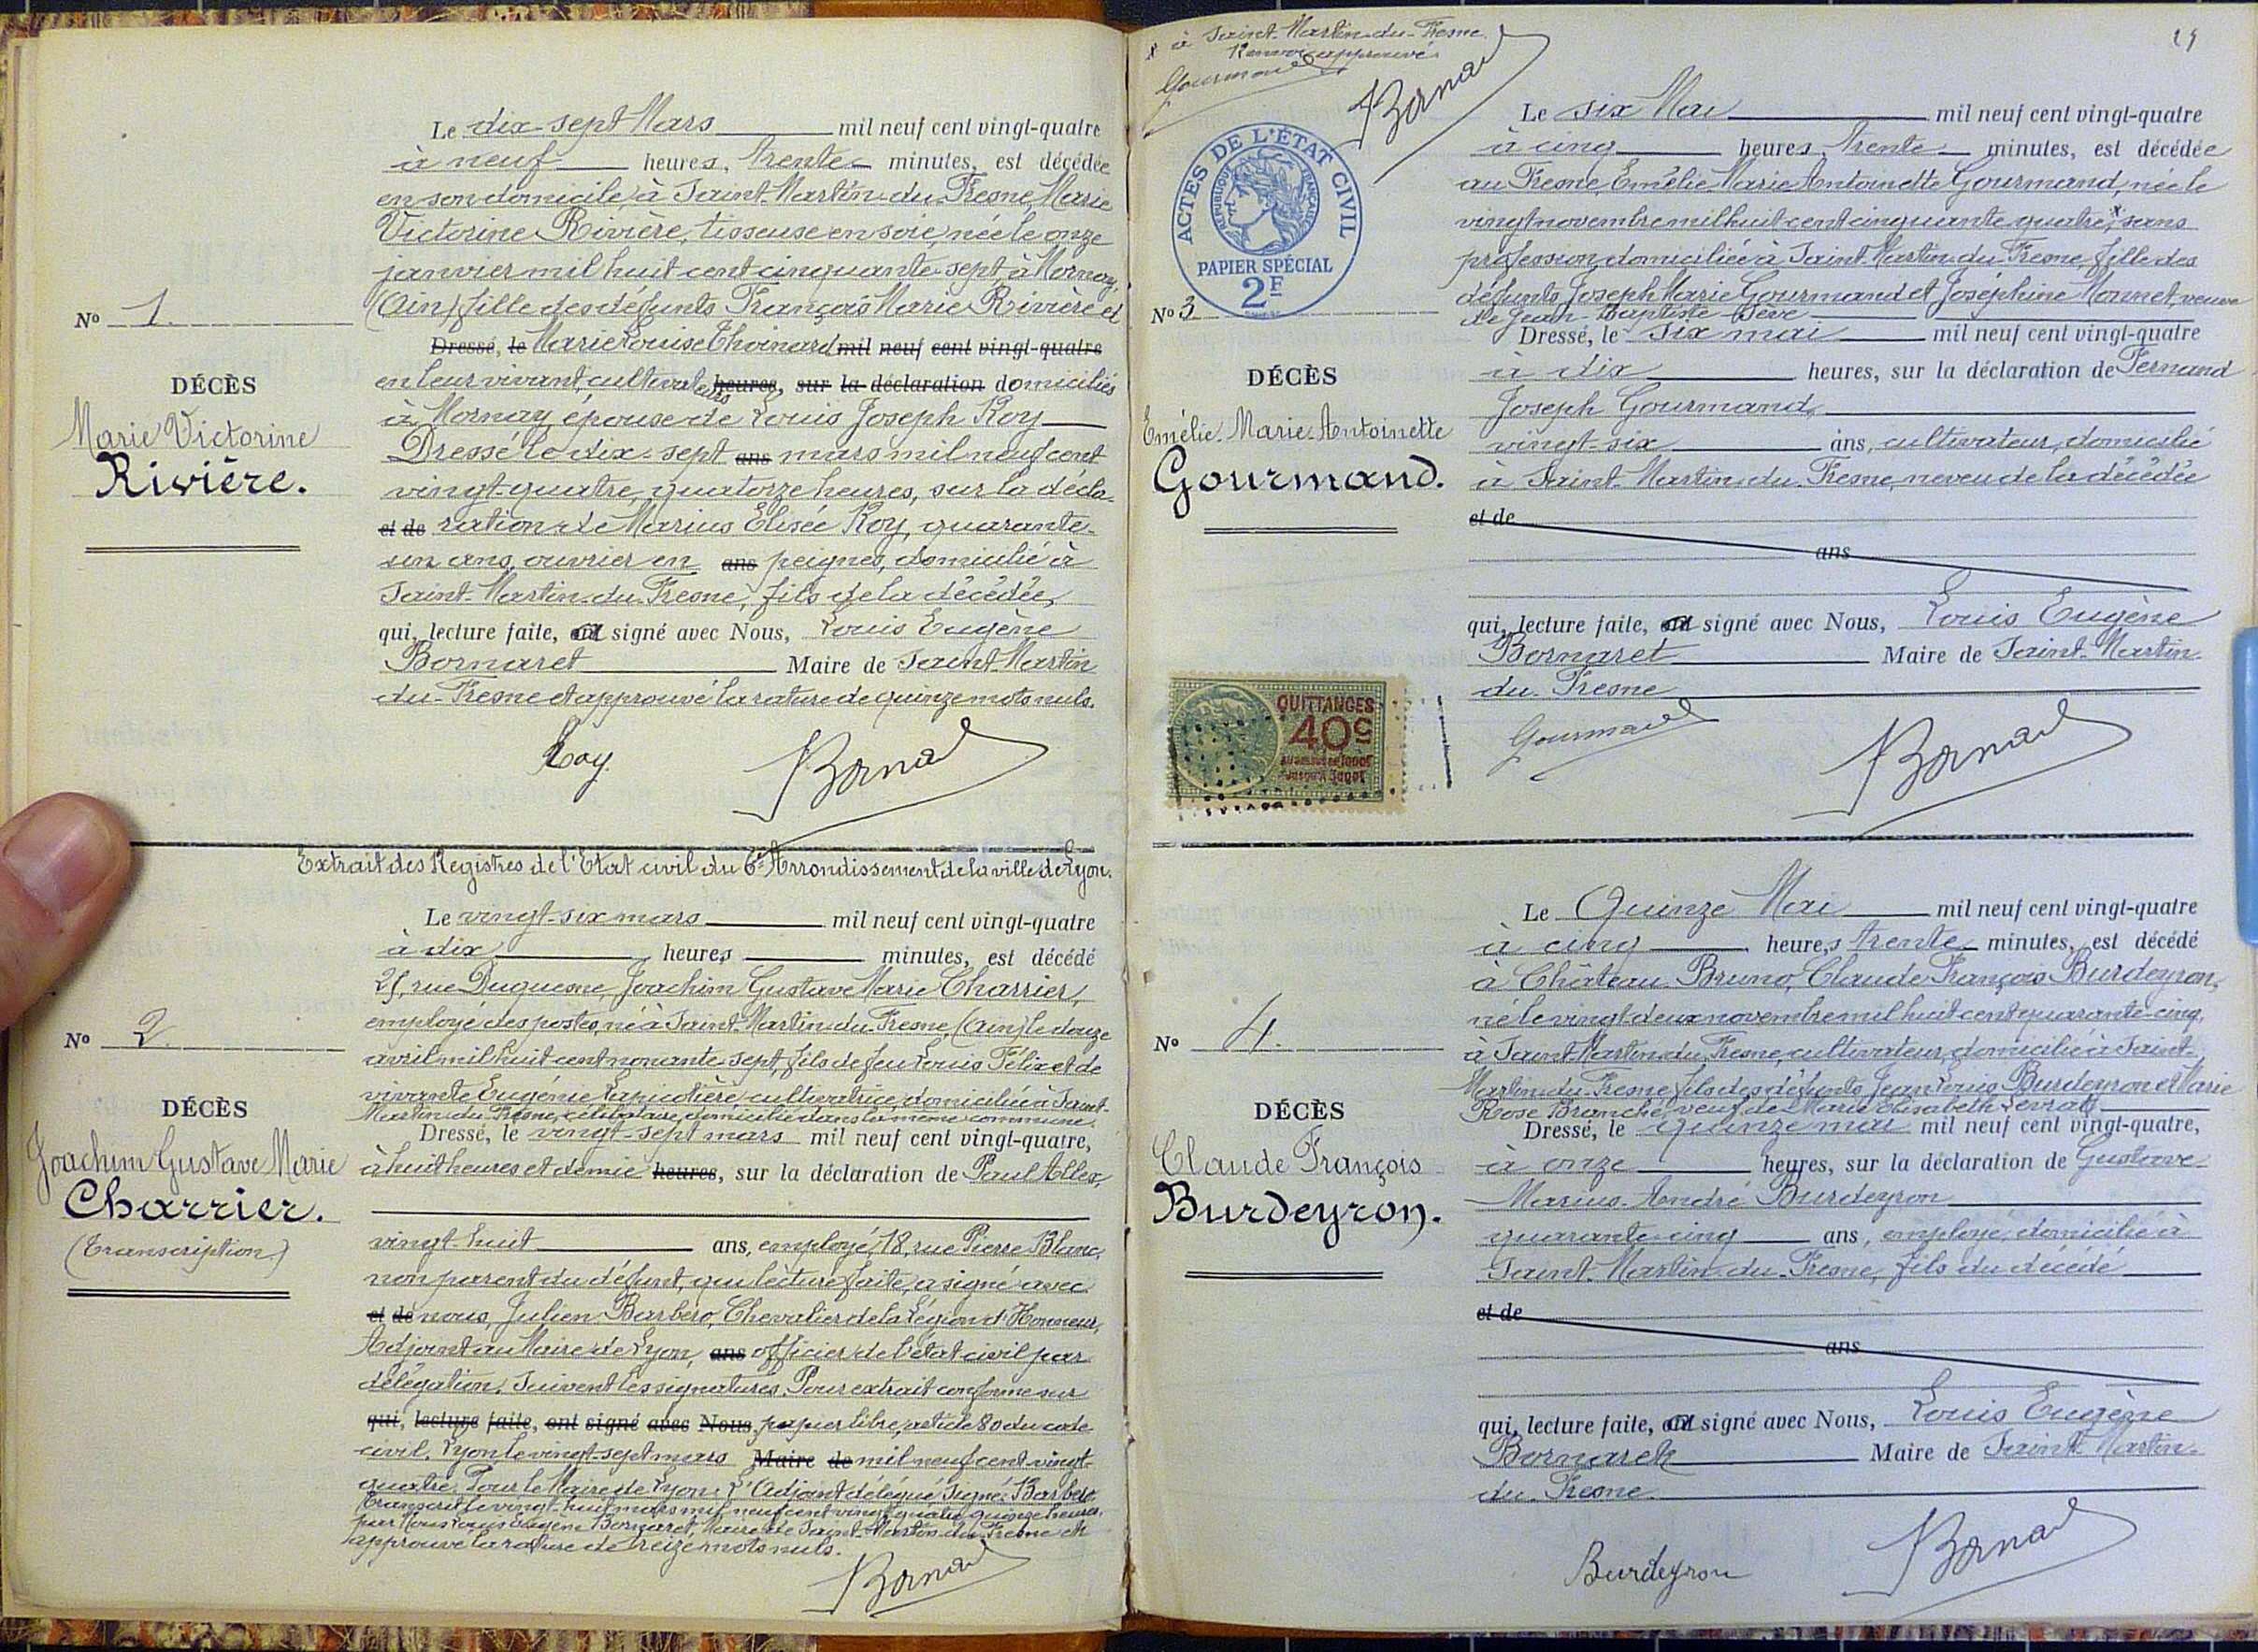 Le dix-sept Mars mil neuf cent vingt-quatre
à neuf heures, trente minutes, est décédée
en son domicile à Saint-Martin-du-Fresne, Marie
Victorine Rivière, tisseuse en soie, née le onze
janvier mil huit cent cinquante-sept, à Mornay,
(Ain), fille des défunts François Marie Rivière et
Nº 1.
Dressé, le Marie Louise Thoinard mil neuf cent vingt-quatre
DÉCÈS
en leur vivant, cultivateurs heures, sur la déclaration domiciliés
Marie Victorine
Rivière.
à Mornay, épouse de Louis Joseph Roy
Dressé le dix-sept ans mars mil neuf cent
vingt-quatre, quatorze heures, sur la décla-
et de ration de Marius Elisée Roy, quarante-
un ans, ouvrier en ans peignes, domicilié à
Saint-Martin-du-Fresne, fils de la décédée,
qui, lecture faite, a signé avec Nous, Louis Eugène
Bornaret Maire de Saint-Martin
du-Fresne et approuvé la rature de quinze mots nuls.
Roy
Bornaret
Extrait des Registres de l'Etat civil du 6e Arrondissement de la ville de Lyon.
Le vingt-six mars mil neuf cent vingt-quatre
à dix heures minutes, est décédé
25, rue Duquesne, Joachim Gustave Marie Charrier,
employé des postes, né à Saint-Martin-du-Fresne, (Ain) le douze
avril mil huit cent nonante-sept, fils de feu Louis Félix et de
Nº 2.
vivante Eugénie Lapicotière, cultivatrice, domiciliée à Saint-
Martin-du-Fresne, célibataire, domicilié dans la même commune.
DÉCÈS
Dressé, le vingt-sept mars mil neuf cent vingt-quatre,
Joachim Gustave Marie
Charrier.
(Transcription)
à huit heures et demie heures, sur la déclaration de Paul Allex,
vingt-huit ans, employé, 18, rue Pierre Blanc,
non parent du défunt, qui lecture faite, a signé avec
et de nous, Julien Barbero, Chevalier de la Légion d'Honneur,
Adjoint au Maire de Lyon, ans officier de l'état civil par
délégation. Suivent les signatures. Pour extrait conforme sur
qui, lecture faite, ont signé avec Nous, papier libre, article 80 du code
civil. Lyon le vingt-sept mars Maire de mil neuf cent vingt-
quatre. Pour le Maire de Lyon: L'Adjoint délégué, Signé: Barbero
Transcrit le vingt-huit mars mil neuf cent vingt-quatre, quinze heures,
par Nous Louis Eugène Bornaret, Maire de Saint-Martin-du-Fresne et
approuvé la rature de treize mots nuls.
Bornaret
x à Saint-Martin-du-Fresne
Renvoi approuvé
Gourmand
Bornaret
ACTES DE L'ÉTAT CIVIL
RÉPUBLIQUE FRANÇAISE
PAPIER SPÉCIAL
2F
Le six Mai mil neuf cent vingt-quatre
à cinq heures, trente minutes, est décédée
au Fresne, Emélie Marie Antoinette Gourmand, née le
vingt novembre mil huit cent cinquante-quatre,x sans
profession, domiciliée à Saint-Martin-du-Fresne, fille des
défunts Joseph Marie Gourmand et Joséphine Monnet, veuve
de Jean-Baptiste Sève
Nº 3
Dressé, le six mai mil neuf cent vingt-quatre
DÉCÈS
Emélie-Marie-Antoinette
Gourmand.
à dix heures, sur la déclaration de Fernand
Joseph Gourmand,
vingt-six ans, cultivateur, domicilié
à Saint-Martin-du-Fresne, neveu de la décédée
et de
ans
qui, lecture faite, a signé avec Nous, Louis Eugène
Bornaret Maire de Saint-Martin-
du-Fresne
Gourmand
Bornaret
QUITTANCES
40c
Le Quinze Mai mil neuf cent vingt-quatre
à cinq heures, trente minutes, est décédé
à Château-Bruno, Claude François Burdeyron,
né le vingt-deux novembre mil huit cent quarante-cinq,
à Saint-Martin-du-Fresne, cultivateur, domicilié à Saint-
Martin-du-Fresne, fils des défunts Jean Louis Burdeyron et Marie
Rose Branche, veuf de Marie Elisabeth Levrat
Nº 4.
DÉCÈS
Claude François
Burdeyron.
Dressé, le quinze mai mil neuf cent vingt-quatre,
à onze heures, sur la déclaration de Gustave
Marius-André Burdeyron
quarante-cinq ans, employé, domicilié à
Saint-Martin-du-Fresne, fils du décédé
et de
ans
qui, lecture faite, a signé avec Nous, Louis Eugène
Bornaret Maire de Saint-Martin-
du-Fresne.
Burdeyron
Bornaret